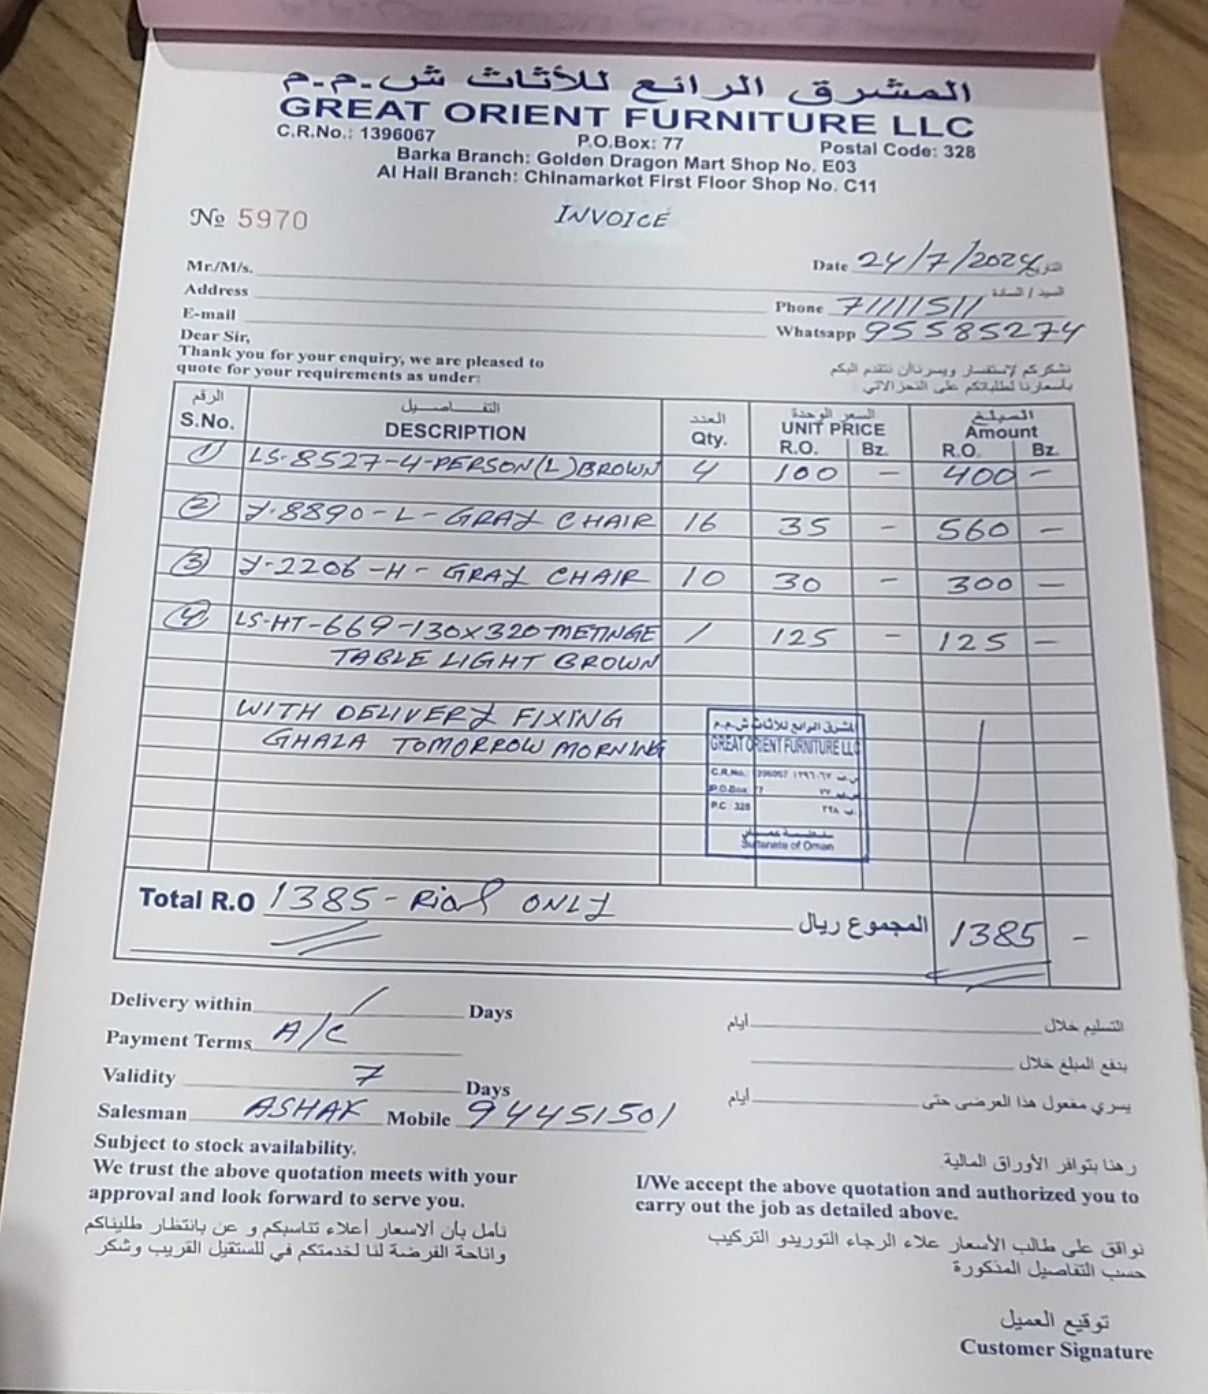 المشرق الرائع للأثاث ش.م.م
GREAT ORIENT FURNITURE LLC
C.R.No.: 1396067 P.O.Box: 77 Postal Code: 328
Barka Branch: Golden Dragon Mart Shop No. E03
Al Hail Branch: Chinamarket First Floor Shop No. C11
№ 5970 INVOICE
Date 24/7/2024 التاريخ
Mr./M/s. السيد / السادة
Address Phone 71111511
E-mail Whatsapp 95585274
Dear Sir,
Thank you for your enquiry, we are pleased to
quote for your requirements as under:
نشكركم لإستفسار ويسرناأن نتقدم اليكم
بأسعارنا لطلباتكم على النحو الاتي :
الرقم التفـــاصـــيل العدد السعر الوحدة المبلغ
S.No. DESCRIPTION Qty. UNIT PRICE Amount
R.O. Bz. R.O. Bz.
1 LS-8527-4-PERSON(L)BROWN 4 100 - 400 -
2 Y-8890-L-GRAY CHAIR 16 35 - 560 -
3 Y-2206-H-GRAY CHAIR 10 30 - 300 -
4 LS-HT-669-130x320-METINGE 1 125 - 125 -
TABLE LIGHT BROWN
WITH DELIVERY FIXING
GHALA TOMORROW MORNING
المشرق الرائع للاثاث ش.م.م
GREAT ORIENT FURNITURE LLC
C.R.No. ١٣٩٦٠٦٧
P.O.Box 77 ٧٧
P.C 328 ٣٢٨
سلطنة عمان
Sultanate of Oman
Total R.O 1385-Rial ONLY المجموع ريال 1385 -
Delivery within / Days
Payment Terms A/C
Validity 7 Days
Salesman ASHAK Mobile 94451501
التسليم خلال أيام
يدفع المبلغ خلال
يسري مفعول هذا العرضى حتى أيام
Subject to stock availability.
We trust the above quotation meets with your
approval and look forward to serve you.
نأمل بأن الاسعار أعلاء تتاسبكم و عن بانتظار طليناكم
واتاحة الفرضة لنا لخدمتكم في للستقيل القريب وشكر
رهنا بتوافر الأوراق المالية.
I/We accept the above quotation and authorized you to
carry out the job as detailed above.
نوافق على طالب الأسعار علاء الرجاء التوريدو التركيب
حسب التفاصيل المذكورة
توقيع العميل
Customer Signature